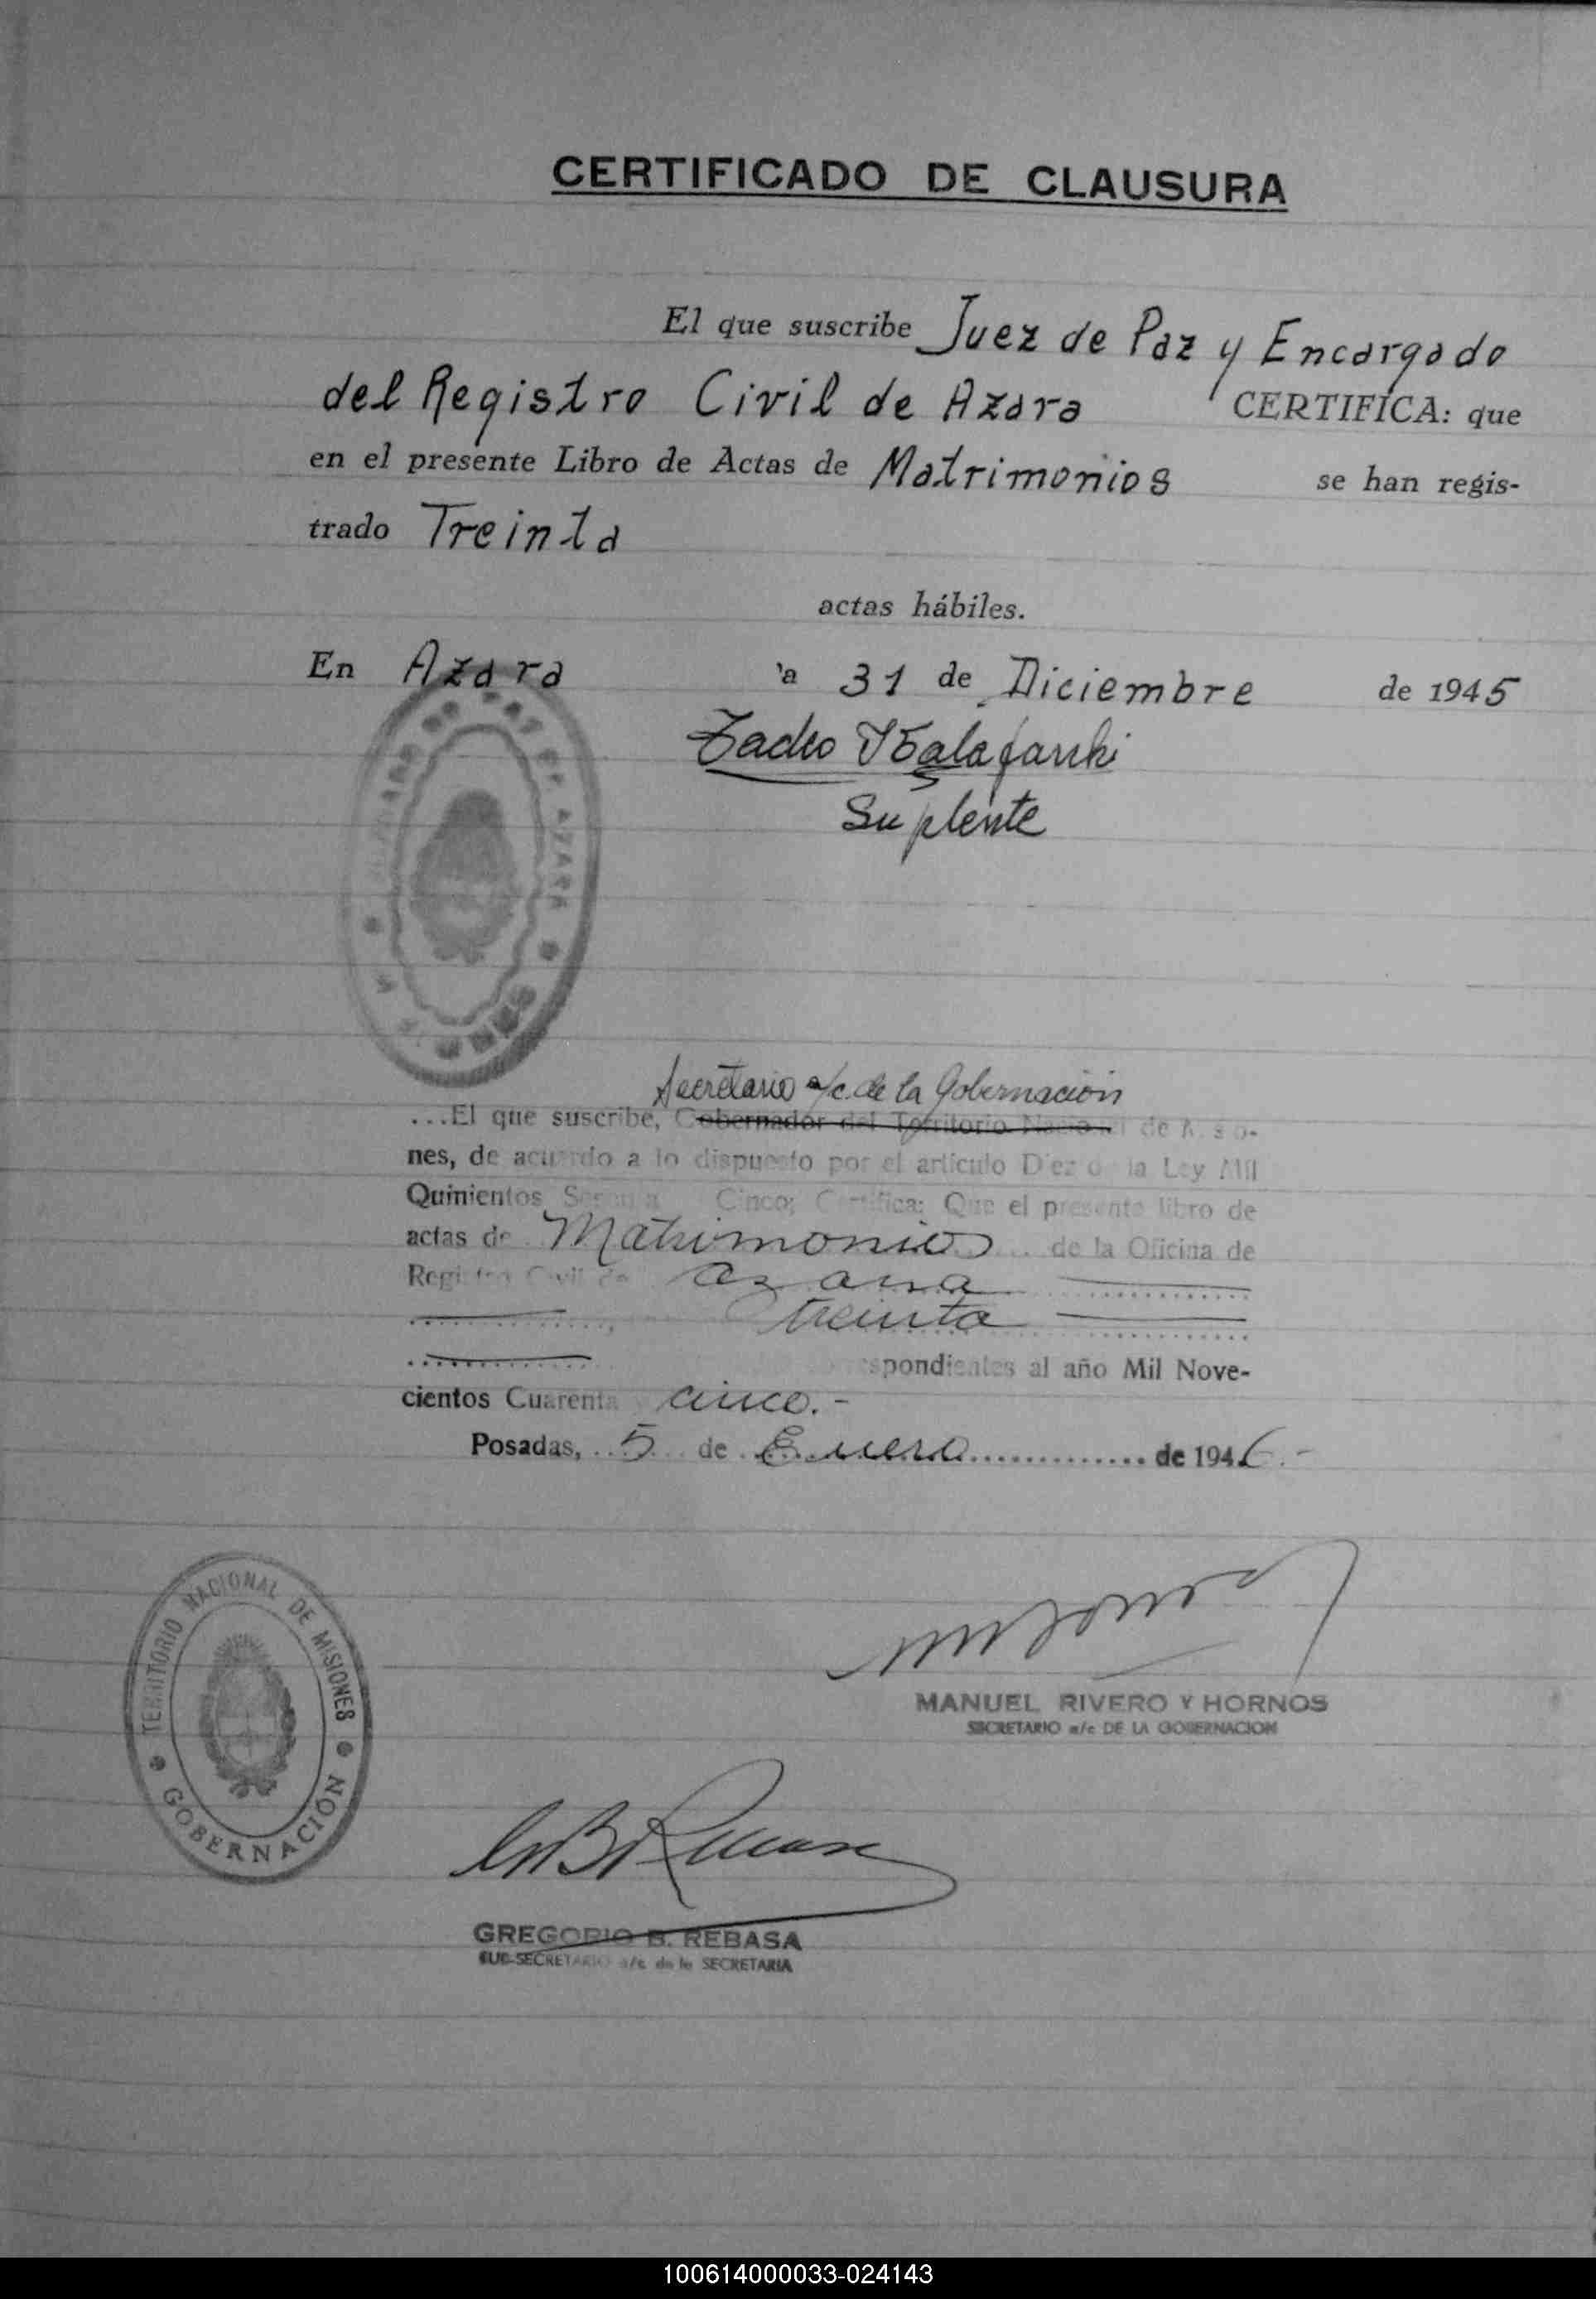 CERTIFICADO DE CLAUSURA
El que suscribe Juez de Paz y Encargado
del Registro Civil de Azara CERTIFICA: que
en el presente Libro de Actas de Matrimonios se han regis-
trado Treinta
actas hábiles.
En Azara a 31 de Diciembre de 1945
Tadeo
Suplente
DE PAZ DE AZARA
Secretario a/c. de la Gobernación
...El que suscribe, Gobernador del Territorio Nacional de Misio-
nes, de acuerdo a lo dispuesto por el artículo Diez de la Ley Mil
Quinientos Cinco; Certifica: Que el presente libro de
actas de Matrimonios de la Oficina de
Registro Civil de Azara
treinta
correspondientes al año Mil Nove-
cientos Cuarenta y cinco.-
Posadas, 5 de Enero de 1946.-
TERRITORIO NACIONAL DE MISIONES
GOBERNACIÓN
MANUEL RIVERO Y HORNOS
SECRETARIO a/c DE LA GOBERNACION
GREGORIO B. REBASA
SUB-SECRETARIO a/c de la SECRETARIA
100614000033-024143